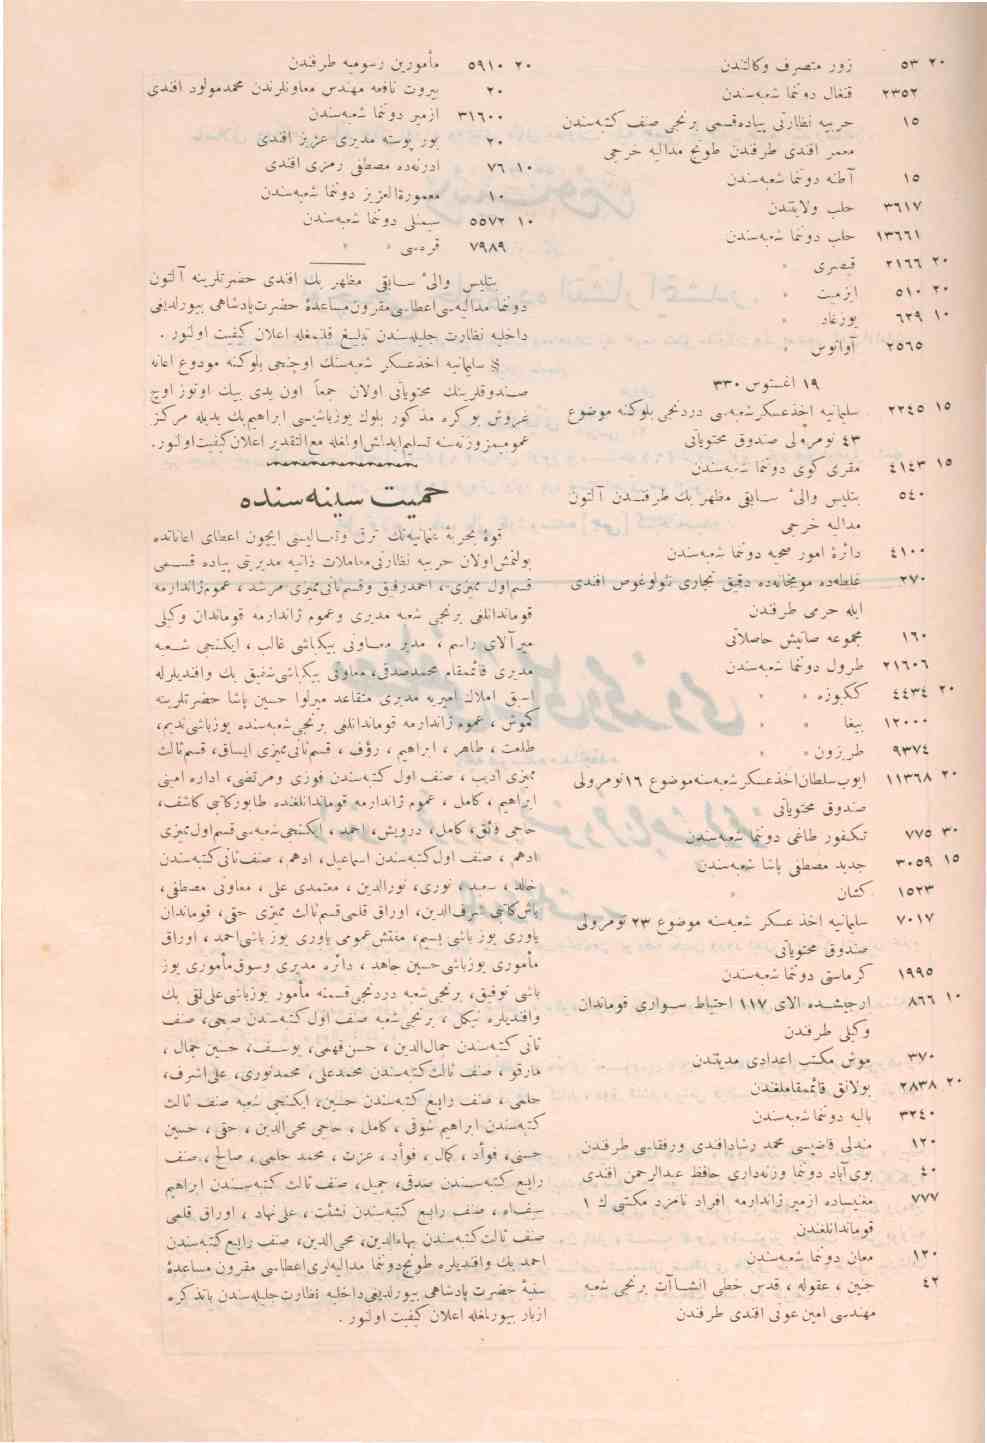 ٢٠ ٥٣ زور متصرف وكالتندن
٢٣٥٢ قنغال دوننما شعبه‌سندن
١٥ حربيه نظارتى پياده قسمى برنجى صنف كتبه‌سندن
معمر افندى طرفندن طونج مداليه خرجى
١٥ آطنه دوننما شعبه‌سندن
٣٦١٧ حلب ولايتندن
١٣٦٦١ حلب دوننما شعبه‌سندن
٢٠ ٢١٦٦ قيصرى »
٢٠ ٥١٠ ازميت » »
١٠ ٦٢٩ يوزغاد »
٢٥٦٥ آوانوس »
١٩ اغستوس ٣٣٠
١٥ ٢٢٤٥ سليمانيه اخذعسكر شعبه‌سى دردنجى بلوكنه موضوع
٤٣ نومرولى صندوق محتوياتى
١٥ ٤١٤٣ مقرى كوى دوننما شعبه‌سندن
٥٤٠ بتليس والئ سابقى مظهر بك طرفندن آلتون
مداليه خرجى
٤١٠٠ دائرهٔ امور صحيه دوننما شعبه‌سندن
٢٧٠ غلطه‌ده مومخانه‌ده دقيق تجارى نئولوغوس افندى
ايله حرمى طرفندن
١٦٠ مجموعه صاتيش حاصلاتى
٢١٦٠٦ طرول دوننما شعبه‌سندن
٢٠ ٤٤٣٤ ككبوزه » »
١٢٠٠٠ بيغا » »
٩٣٧٤ طربزون » »
٢٠ ١١٣٦٨ ايوب سلطان اخذعسكر شعبه‌سنه موضوع ١٦ نومرولى
صندوق محتوياتى
٣٠ ٧٧٥ تكفور طاغى دوننما شعبه‌سندن
١٥ ٣٠٥٩ جديد مصطفى پاشا شعبه‌سندن
١٥٢٣ كشان »
٧٠١٧ سليمانيه اخذ عسكر شعبه‌سنه موضوع ٢٣ نومرولى
صندوق محتوياتى
١٩٩٥ كرماستى دوننما شعبه‌سندن
١٠ ٨٦٦ ارجيشده الاى ١١٧ احتياط سوارى قوماندان
وكيلى طرفندن
٣٧٠ موش مكتب اعدادى مديتندن
٢٠ ٢٨٣٨ بولانق قائممقاملغندن
٣٢٤٠ باليه دوننما شعبه‌سندن
١٢٠ مندلى قاضيسى محمد رشاد افندى ورفقاسى طرفندن
٤٠ بوى‌آباد دوننما وزنه‌دارى حافظ عبدالرحمن افندى
٧٧٧ مغنيساده ازمير ژاندارمه افراد نامزد مكتبى ك ١
قوماندانلغندن
١٢٠ معان دوننما شعبه‌سندن
٤٢ جنين ، عفوله ، قدس خطى انشاآت برنجى شعبه
مهندسى امين عونى افندى طرفندن
٢٠ ٥٩١٠ مأمورين رسوميه طرفندن
٢٠ بيروت نافعه مهندس معاونلرندن محمدمولود افندى
٣١٦٠٠ ازمير دوننما شعبه‌سندن
٢٠ بور پوسته مديرى عزيز افندى
١٠ ٧٦ ادرنه‌ده مصطفى رمزى افندى
١٠ معمورةالعزيز دوننما شعبه‌سندن
١٠ ٥٥٧٢ سمنلى دوننما شعبه‌سندن
٧٩٨٩ قره‌سى » »
بتليس والئ سابقى مظهر بك افندى حضرتلرينه آلتون
دوننما مداليه‌سى اعطاسى مقرون مساعدهٔ حضرت پادشاهى بيورلديغى
داخليه نظارت جليله‌سندن تبليغ قلنمغله اعلان كيفيت اولنور .
§ سليمانيه اخذعسكر شعبه‌سنك اوچنجى بلوكنه مودوع اعانه
صندوقلرينك محتوياتى اولان جمعاً اون يدى بيك اوتوز اوچ
غروش بو كره مذكور بلوك يوزباشيسى ابراهيم بك يديله مركز
عموميمز وزنه‌سنه تسليم ايدلمش اولمغله مع التقدير اعلان كيفيت اولنور.
حميت سينه‌سنده
قوهٔ بحريهٔ عثمانيه‌نك ترقى وتعاليسى ايچون اعطاى اعاناتده
بولنمش اولان حربيه نظارتى معاملات ذاتيه مديريتى پياده قسمى
قسم اول مميزى ، احمد رفيق وقسم ثانى مميزى مرشد ، عموم ژاندارمه
قوماندانلغى برنجى شعبه مديرى وعموم ژاندارمه قوماندان وكيلى
ميرآلاى راسم ، مدير معاونى بيكباشى غالب ، ايكنجى شعبه
مديرى قائممقام محمدصدقى، معاونى بيكباشى شفيق بك وافنديلرله
اسبق املاك اميريه مديرى متقاعد ميرلوا حسين پاشا حضرتلرينه
كموش ، عموم ژاندارمه قوماندانلغى برنجى شعبه‌سنده يوزباشى نديم،
طلعت ، طاهر ، ابراهيم ، رؤف ، قسم ثانى مميزى ايساق، قسم ثالث
مميزى اديب ، صنف اول كتبه‌سندن فوزى ومرتضى، اداره امينى
ابراهيم ، كامل ، عموم ژاندارمه قوماندانلغنده طابور كاتبى كاشف،
حاجى فائق، كامل، درويش، احمد ، ايكنجى شعبه‌سى قسم اول مميزى
ادهم ، صنف اول كتبه‌سندن اسماعيل، ادهم ، صنف ثانى كتبه‌سندن
خالد ، سعيد ، نورى، نورالدين ، معتمدى على ، معاونى مصطفى،
باش كاتبى شرف‌الدين، اوراق قلمى قسم ثالث مميزى حقى، قوماندان
ياورى يوز باشى بسيم، مفتش عمومى ياورى يوز باشى احمد ، اوراق
مأمورى يوزباشى حسين جاهد ، دائره مديرى وسوق مأمورى يوز
باشى توفيق، برنجى شعبه دردنجى قسمنه مأمور يوزباشى على لقى بك
وافنديلره نيكل ، برنجى شعبه صنف اول كتبه‌سندن صبحى، صنف
ثانى كتبه‌سندن جمال‌الدين ، حسن فهمى، يوسف، حسين جمال ،
مارقو ، صنف ثالث كتبه‌سندن محمدعلى، محمدنورى، على اشرف،
حلمى ، صنف رابع كتبه‌سندن حسين، ايكنجى شعبه صنف ثالث
كتبه‌سندن ابراهيم شوقى ، كامل ، حاجى محى‌الدين ، حقى ، حسين
حسنى، فوأد ، كمال ، فوأد ، عزت ، محمد حلمى ، صالح ، صنف
رابع كتبه‌سندن صدقى، جميل، صنف ثالث كتبه‌سندن ابراهيم
سيف‌اه ، صنف رابع كتبه‌سندن نشئت ، على نهاد ، اوراق قلمى
صنف ثالث كتبه‌سندن بهاءالدين، محى‌الدين، صنف رابع كتبه‌سندن
احمد بك وافنديلره طونج دوننما مداليه‌لرى اعطاسى مقرون مساعدهٔ
سنيهٔ حضرت پادشاهى بيورلديغى داخليه نظارت جليله‌سندن باتذكره
ازبار بيورلمغله اعلان كيفيت اولنور .